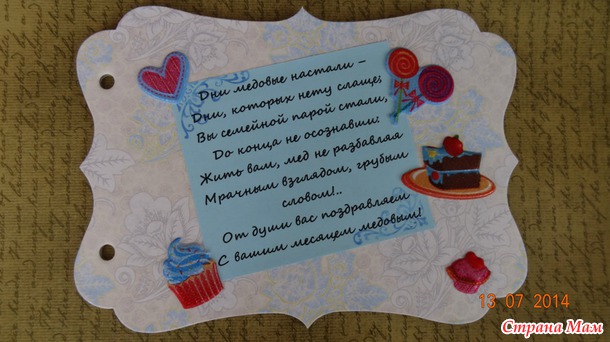 Дни медовые настали –
Дни, которых нету слаще;
Вы семейной парой стали,
До конца не осознавши:
Жить вам, мед не разбавляя
Мрачным взглядом, грубым
словом!..
От души вас поздравляем
С вашим месяцем медовым!
13 07 2014
Страна Мам